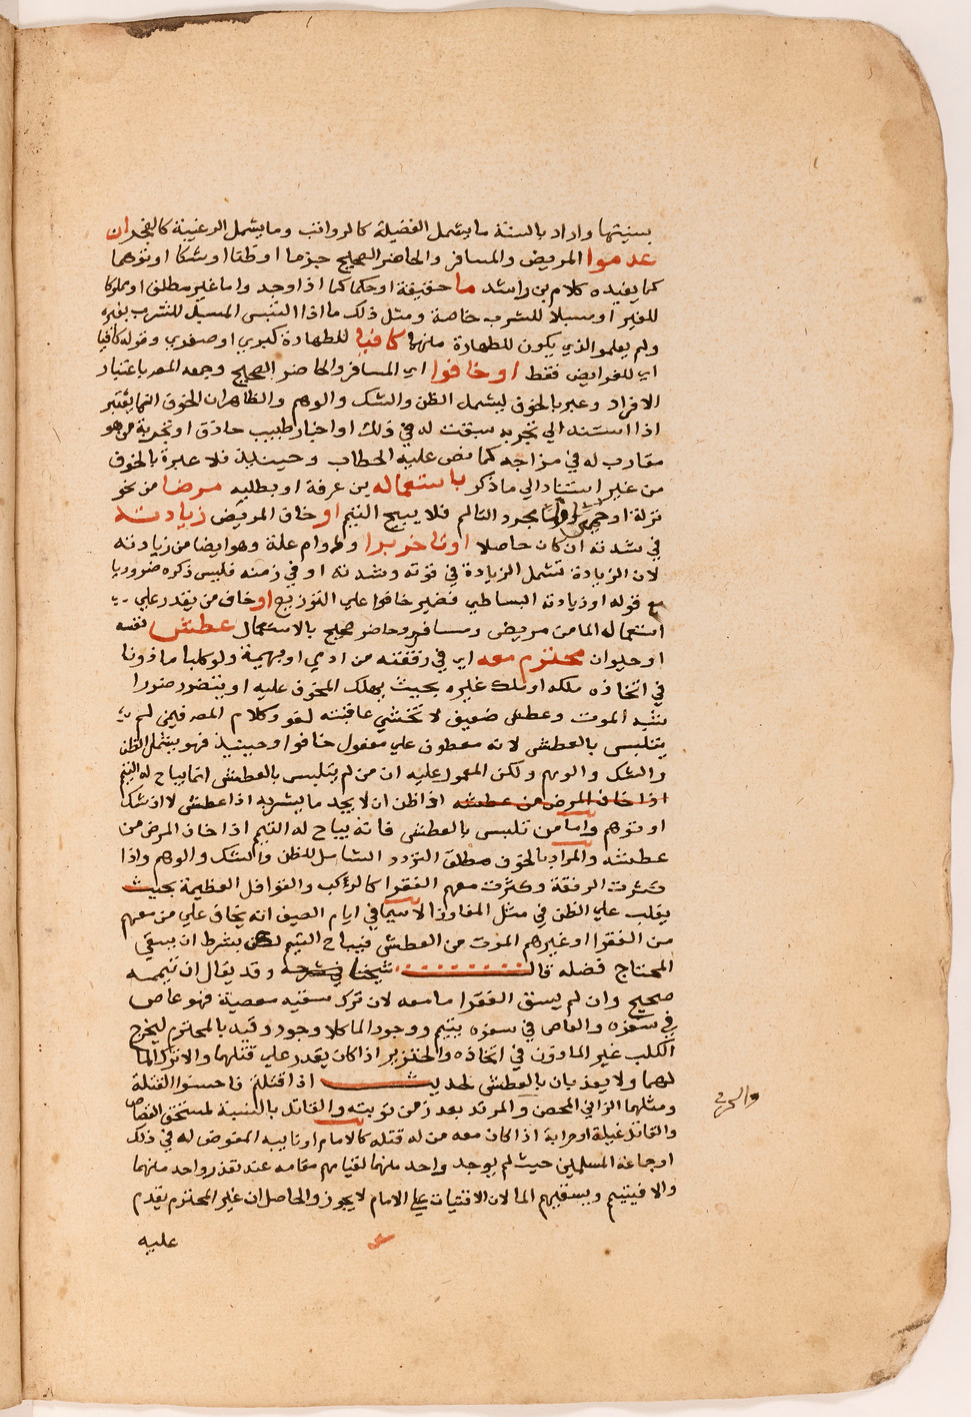 بسنيتها واراد بالسنة ما يشمل الفضيلة كالرواتب وما يشمل الرغيبة كالفجر ان
عدموا المريض والمسافر والحاضر الصحيح جزما او ظنا او شكا او توهما
كما يفيده كلام بن راشد ما حقيقة او حكما كما اذا وجد واما غير مطلق او مملوكا
للغير او مسبلا للشرب خاصة ومثل ذلك ما اذا التبس المسبل للشرب بغيره
ولم يعلموا الذي يكون للطهارة منهما كافيا للطهارة كبري او صغري وقوله كافيا
اي للفرايض فقط او خافوا اي المسافر والحاضر الصحيح وجمعه المص باعتبار
الافراد وعبر بالخوف ليشمل الظن والشك والوهم والظاهر ان الخوف انما يعتبر
اذا استند الي تجربه سبقت له في ذلك او اخبار طبيب حاذق او تجربة من هو
مقارب له في مزاجه كما نص عليه الحطاب وحينيذ فلا عبرة بالخوف
من غير استناد الي ما ذكر باستعماله بن عرفة او بطلبه مرضا من نحو
نزلة او حمي واما مجرد التالم فلا يبيح التيمم او خاف المريض زيادته
في شدته ان كان حاصلا او تاخر برا ودوام علة وهو ايضا من زيادته
لان الزيادة تشمل الزيادة في قوته وشدته او في زمنه فليس ذكره ضروريا
مع قوله او زيادته البساطي فضمير خافوا علي التوزيع او خاف من يقدر علي
استعماله الما من مريض ومسافر وحاضر صحيح بالاستعمال عطش نفسه
او حيوان محترم معه اي في رفقته من ادمي او بهيمة ولو كلبا ماذونا
في اتخاذه ملكه او ملك غيره بحيث يهلك المخوف عليه او يتضرر ضررا
شبه الموت وعطش ضعيف لا تخشي عاقبته لغو وكلام المص فيمن لم
يتلبس بالعطش لانه معطوف علي مفعول خافوا وحينيذ فهو يشمل الظن
والشك والوهم ولكن المعول عليه ان من لم يتلبس بالعطش انما يباح له التيمم
اذا خاف المرض من عطشه اذا ظن ان لا يجد ما يشربه اذا عطش لا ان شك
او توهم واما من تلبس بالعطش فانه يباح له التيمم اذا خاف المرض من
عطشه والمراد بالخوف مطلق التردد الشامل للظن والشك والوهم واذا
كثرت الرفقة وكثرت معهم الفقرا كالركب والقوافل العظيمة بحيث
يغلب علي الظن في مثل المفاوز لا سيما في ايام الصيف انه يخاف علي من معهم
من الفقرا او غيرهم الموت من العطش فيباح التيمم لكن بشرط ان يسقي
المحتاج فضله قال شيخنا في شرحه وقد يقال ان تيممه
صحيح وان لم يسق الفقرا ما معه لان ترك سقيه معصية فهو عاص
في سفره والعاصي في سفره يتيمم ووجود الما كلا وجود وقيد بالمحترم ليخرج
الكلب غير الماذون في اتخاذه والخنزير اذا كان يقدر علي قتلهما والا ترك الما
لهما ولا يعذبان بالعطش لحديث اذا قتلتم فاحسنوا القتلة
ومثلهما الزاني المحصن والمرتد بعد زمن توبته والقاتل بالنسبة لمستحق القصاص
والقاتل غيلة او حرابة اذا كان معه من له قتله كالامام او نايبه المفوض له في ذلك
او جماعة المسلمين حيث لم يوجد واحد منهما لقيامهم مقامه عند تعذر واحد منهما
والا فيتيمم ويسقيهم الما لان الافتيات علي الامام لا يجوز والحاصل ان غير المحترم يقدم
عليه